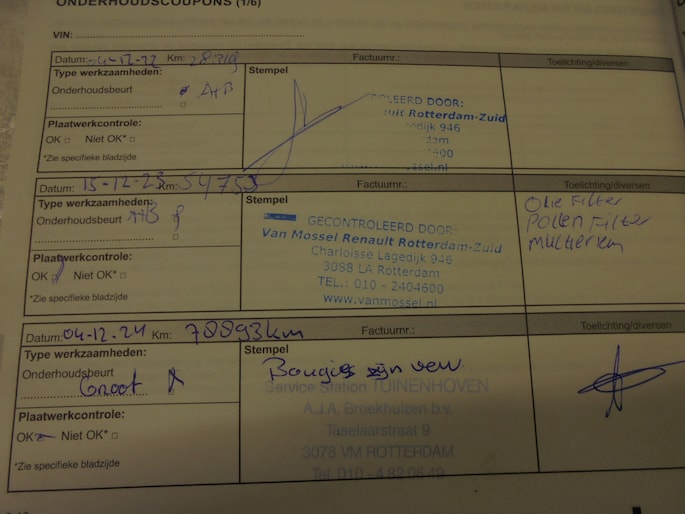 ONDERHOUDSCOUPONS (1/6)
VIN:
Datum: 04-12-22 Km: 28319 Factuurnr.: Toelichting/diversen
Type werkzaamheden: Stempel
Onderhoudsbeurt A+B
Plaatwerkcontrole:
OK Niet OK*
*Zie specifieke bladzijde
ROLEERD DOOR:
uit Rotterdam-Zuid
gedijk 946
dam
400
mossel.nl
Datum: 15-12-23 Km: 54753 Factuurnr.: Toelichting/diversen
Type werkzaamheden: Stempel
Onderhoudsbeurt A+B
Plaatwerkcontrole:
OK Niet OK*
*Zie specifieke bladzijde
GECONTROLEERD DOOR:
Van Mossel Renault Rotterdam-Zuid
Charloisse Lagedijk 946
3088 LA Rotterdam
TEL.: 010 - 2404600
www.vanmossel.nl
Olie Filter
Pollen Filter
Multiriem
Datum: 04-12-24 Km: 78893km Factuurnr.: Toelichting/diversen
Type werkzaamheden: Stempel
Onderhoudsbeurt
Groot
Plaatwerkcontrole:
OK Niet OK*
*Zie specifieke bladzijde
Bougies zijn
Service Station TUINENHOVEN
A.J.A. Broekhuizen b.v.
Taselaarstraat 9
3078 VM ROTTERDAM
Tel. 010 - 4.82.06.49